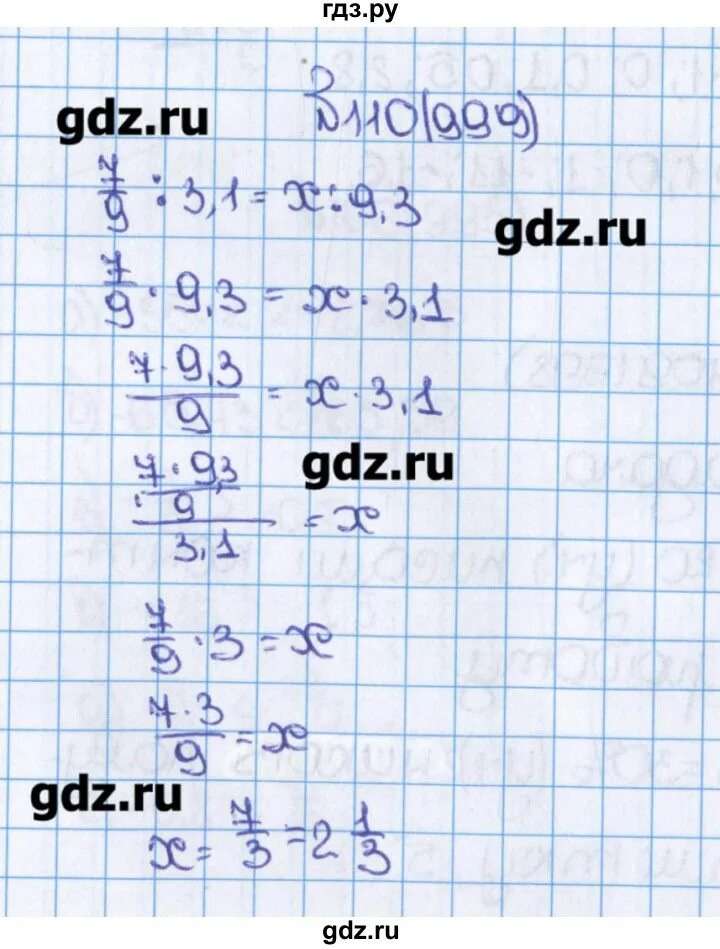 гдз.ру
№110(999)
gdz.ru
7/9 : 3,1 = x : 9,3
gdz.ru
7/9 · 9,3 = x · 3,1
7 · 9,3 / 9 = x · 3,1
gdz.ru
7 · 9,3 / 9 / 3,1 = x
7/9 · 3 = x
7 · 3 / 9 = x
gdz.ru
x = 7/3 = 2 1/3
gdz.ru